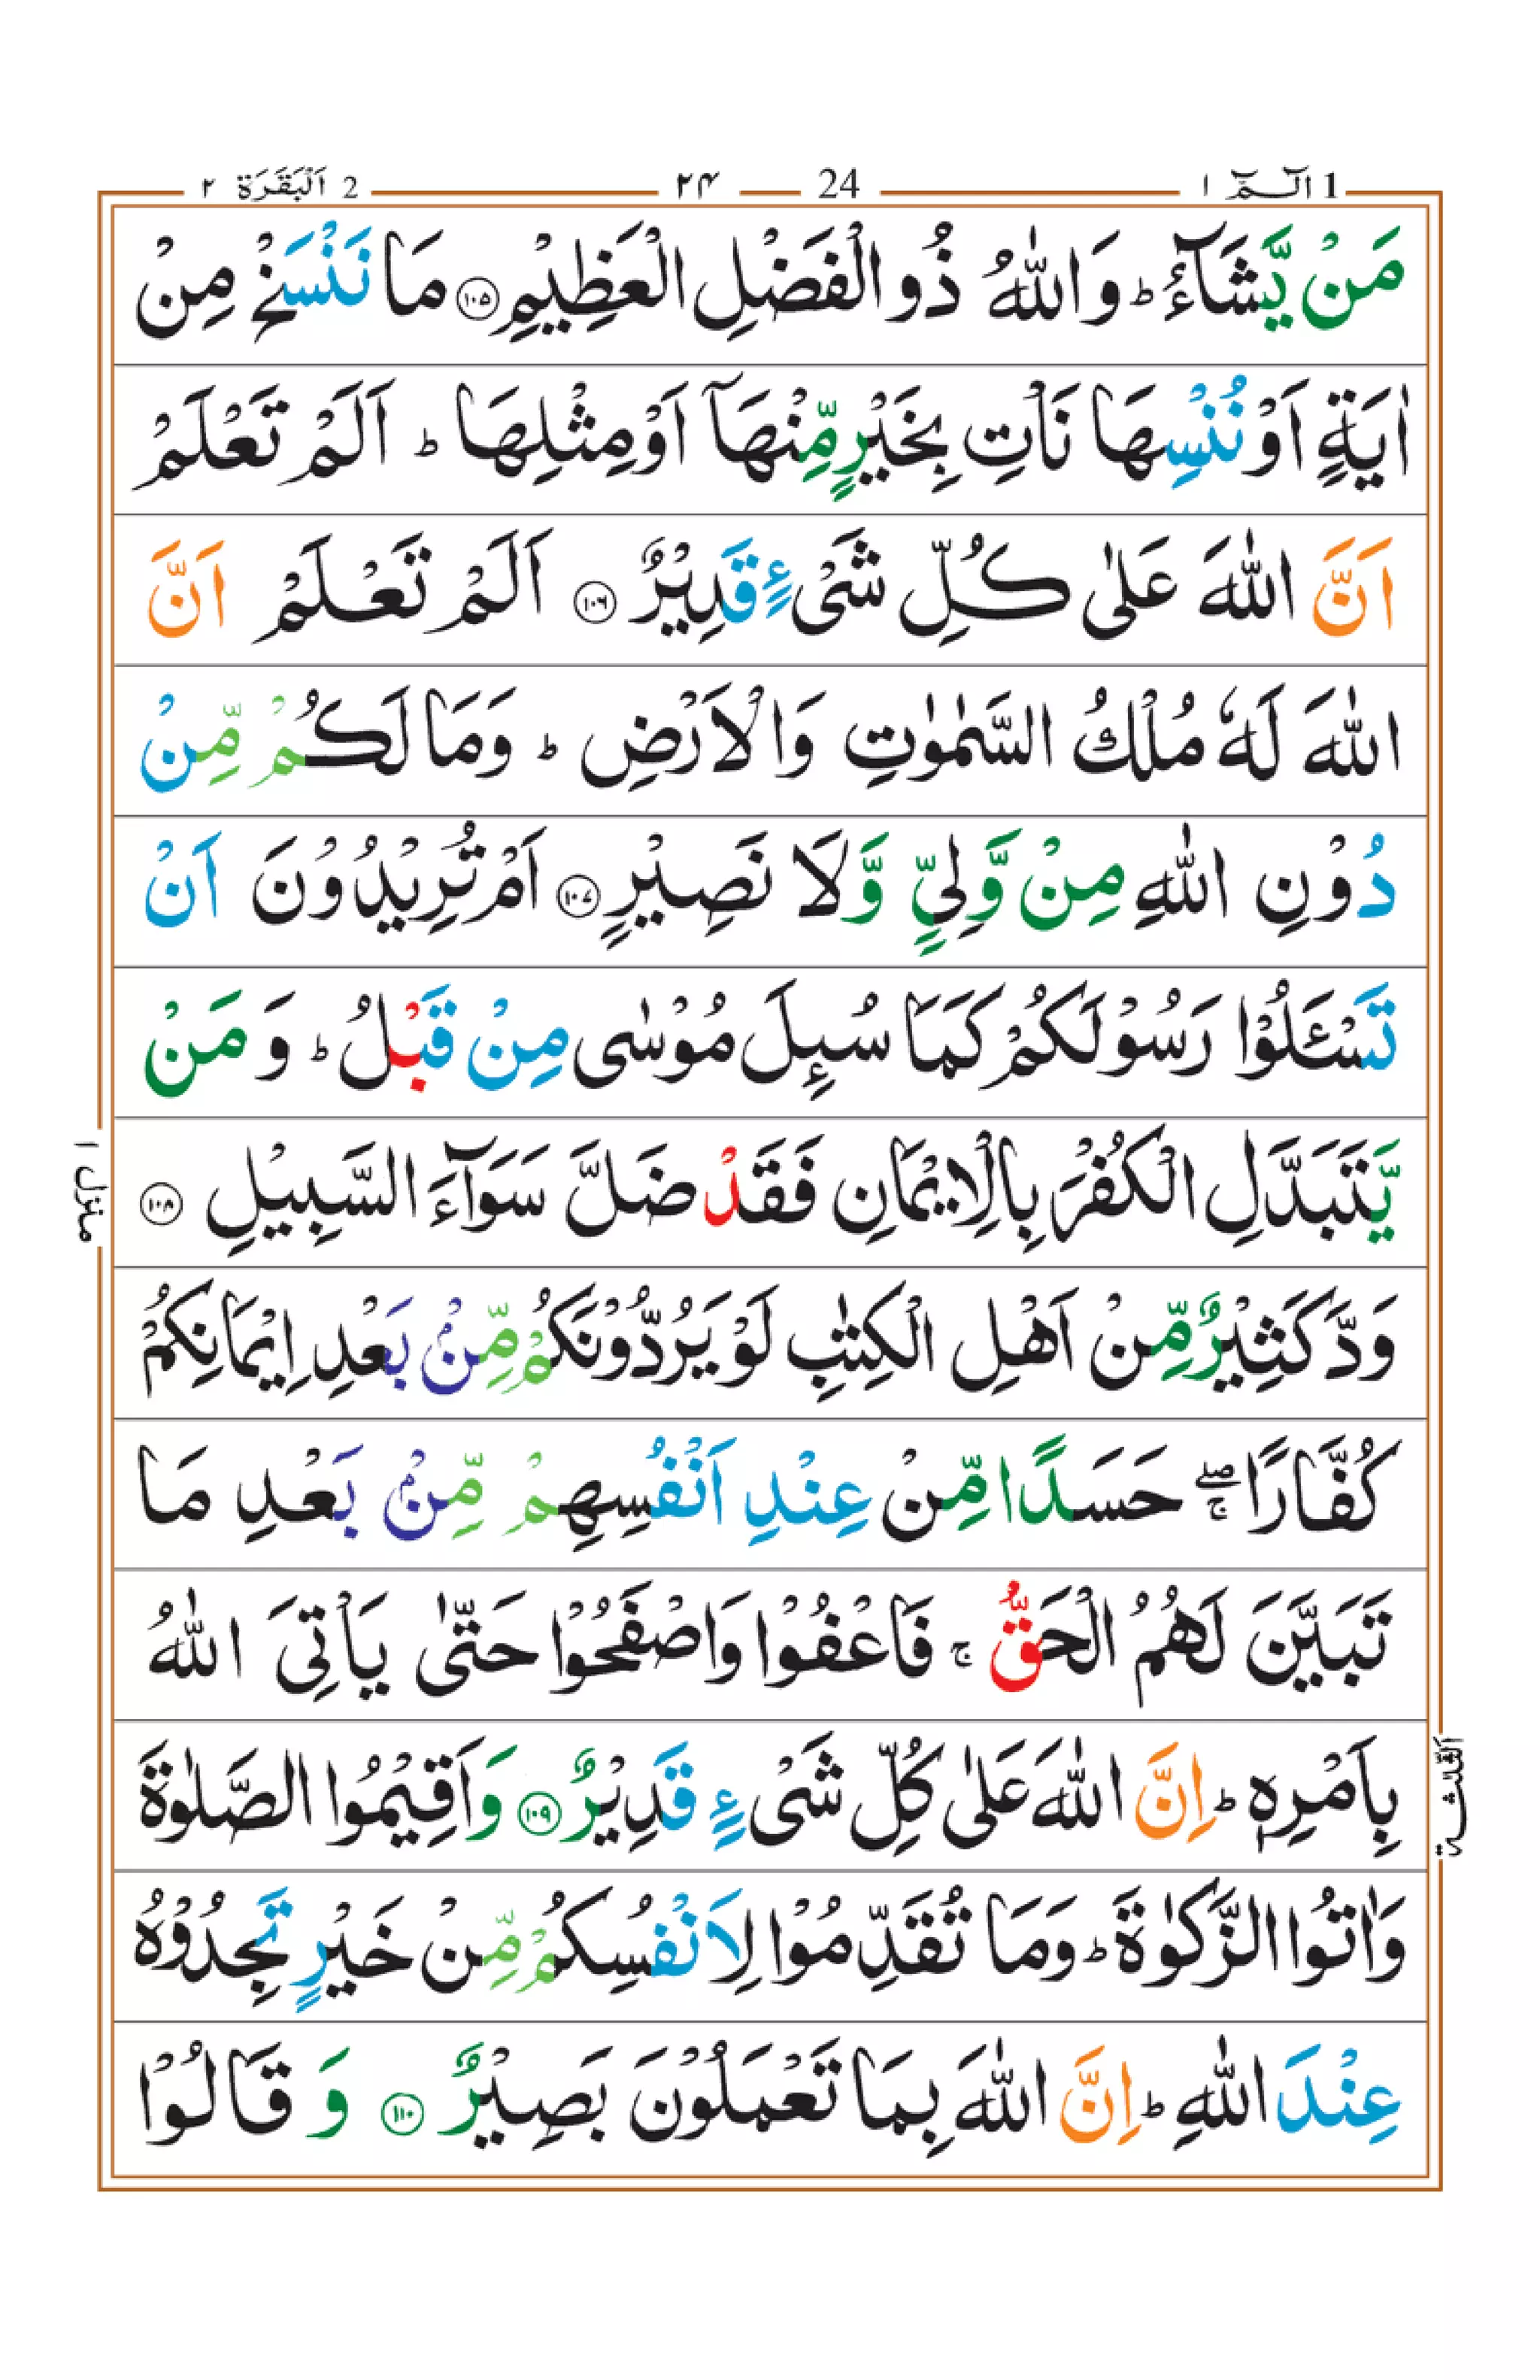 1 الٓـمّٓ ١ 24 ٢٤ 2 اَلْبَقَرَة ٢
مَنْ يَّشَآءُ ؕ وَاللّٰهُ ذُو الْفَضْلِ الْعَظِيْمِ ۝۱۰۵ مَا نَنْسَخْ مِنْ
اٰيَةٍ اَوْ نُنْسِهَا نَاْتِ بِخَيْرٍ مِّنْهَآ اَوْ مِثْلِهَا ؕ اَلَمْ تَعْلَمْ
اَنَّ اللّٰهَ عَلٰى كُلِّ شَىْءٍ قَدِيْرٌ ۝۱۰۶ اَلَمْ تَعْلَمْ اَنَّ
اللّٰهَ لَهٗ مُلْكُ السَّمٰوٰتِ وَالْاَرْضِ ؕ وَمَا لَكُمْ مِّنْ
دُوْنِ اللّٰهِ مِنْ وَّلِىٍّ وَّلَا نَصِيْرٍ ۝۱۰۷ اَمْ تُرِيْدُوْنَ اَنْ
تَسْـَٔلُوْا رَسُوْلَكُمْ كَمَا سُىِٕلَ مُوْسٰى مِنْ قَبْلُ ؕ وَ مَنْ
يَّتَبَدَّلِ الْكُفْرَ بِالْاِيْمَانِ فَقَدْ ضَلَّ سَوَآءَ السَّبِيْلِ ۝۱۰۸
وَدَّ كَثِيْرٌ مِّنْ اَهْلِ الْكِتٰبِ لَوْ يَرُدُّوْنَكُمْ مِّنْۢ بَعْدِ اِيْمَانِكُمْ
كُفَّارًا ۖۚ حَسَدًا مِّنْ عِنْدِ اَنْفُسِهِمْ مِّنْۢ بَعْدِ مَا
تَبَيَّنَ لَهُمُ الْحَقُّ ۚ فَاعْفُوْا وَاصْفَحُوْا حَتّٰى يَاْتِىَ اللّٰهُ
بِاَمْرِهٖ ؕ اِنَّ اللّٰهَ عَلٰى كُلِّ شَىْءٍ قَدِيْرٌ ۝۱۰۹ وَاَقِيْمُوا الصَّلٰوةَ
وَاٰتُوا الزَّكٰوةَ ؕ وَمَا تُقَدِّمُوْا لِاَنْفُسِكُمْ مِّنْ خَيْرٍ تَجِدُوْهُ
عِنْدَ اللّٰهِ ؕ اِنَّ اللّٰهَ بِمَا تَعْمَلُوْنَ بَصِيْرٌ ۝۱۱۰ وَ قَالُوْا
منزل ١
الثلثة